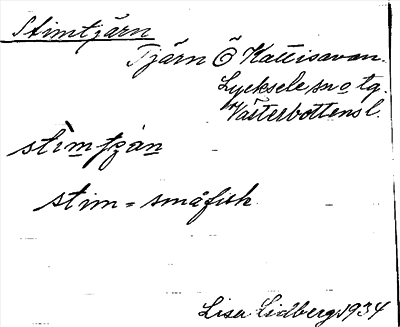 Stimtjärn
Tjärn Ö Kattisavan.
Lycksele sn o tg.
Västerbottens l.
stìmtján
stim = småfisk
Lisa Lidberg 1934